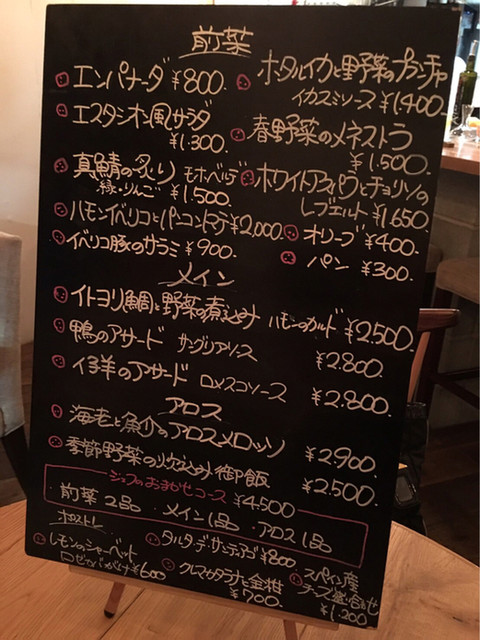 前菜
エンパナーダ ¥800.
エスタシオン風サラダ
¥1.300.
真鯖の炙り モホベルデ
緑・りんご ¥1.500
ハモンイベリコとパンコントマテ ¥2,000.
イベリコ豚のサラミ ¥900.
ホタルイカと野菜のプランチャ
イカスミソース ¥1400.
春野菜のメネストラ
¥1.500.
ホワイトアスパラとチョリソの
レブエルト ¥1.650.
オリーブ ¥400.
パン ¥300.
メイン
イトヨリ鯛と野菜の煮込み ハモンのカルド ¥2.500.
鴨のアサード サングリアソース ¥2.800.
仔羊のアサード ロメスコソース ¥2.800.
アロス
海老と魚介のアロスメロッソ ¥2900.
季節野菜の炊込み御飯 ¥2.500.
シェフのおまかせコース ¥4.500
前菜 2品 メイン1品 アロス 1品
ポストレ
レモンのシャーベット
¥600
タルタ・デ・サンティアゴ ¥800
クレマカタラナと金柑
¥700.
スペイン産
チーズ盛り合わせ
¥1.200